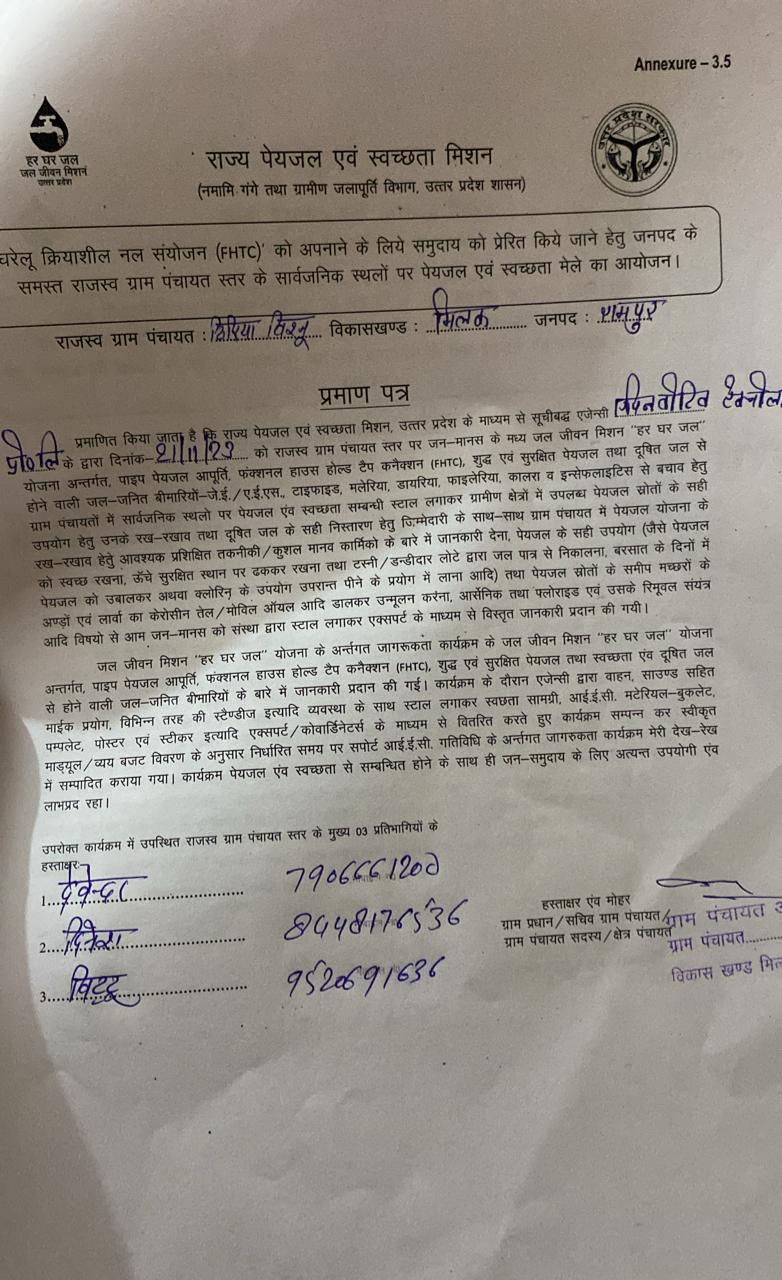 Annexure – 3.5
हर घर जल
जल जीवन मिशन
उत्तर प्रदेश
उत्तर प्रदेश सरकार
राज्य पेयजल एवं स्वच्छता मिशन
(नमामि गंगे तथा ग्रामीण जलापूर्ति विभाग, उत्तर प्रदेश शासन)
घरेलू क्रियाशील नल संयोजन (FHTC)' को अपनाने के लिये समुदाय को प्रेरित किये जाने हेतु जनपद के
समस्त राजस्व ग्राम पंचायत स्तर के सार्वजनिक स्थलों पर पेयजल एवं स्वच्छता मेले का आयोजन।
राजस्व ग्राम पंचायत : विकासखण्ड : मिलक जनपद : रामपुर
प्रमाण पत्र
प्रमाणित किया जाता है कि राज्य पेयजल एवं स्वच्छता मिशन, उत्तर प्रदेश के माध्यम से सूचीबद्ध एजेन्सी
प्रा०लि के द्वारा दिनांक-21/11/23 को राजस्व ग्राम पंचायत स्तर पर जन-मानस के मध्य जल जीवन मिशन "हर घर जल"
योजना अन्तर्गत, पाइप पेयजल आपूर्ति, फंक्शनल हाउस होल्ड टैप कनैक्शन (FHTC), शुद्ध एवं सुरक्षित पेयजल तथा दूषित जल से
होने वाली जल-जनित बीमारियों-जे.ई./ए.ई.एस., टाइफाइड, मलेरिया, डायरिया, फाइलेरिया, कालरा व इन्सेफलाइटिस से बचाव हेतु
ग्राम पंचायतों में सार्वजनिक स्थलो पर पेयजल एंव स्वच्छता सम्बन्धी स्टाल लगाकर ग्रामीण क्षेत्रों में उपलब्ध पेयजल स्रोतों के सही
उपयोग हेतु उनके रख-रखाव तथा दूषित जल के सही निस्तारण हेतु जिम्मेदारी के साथ-साथ ग्राम पंचायत में पेयजल योजना के
रख-रखाव हेतु आवश्यक प्रशिक्षित तकनीकी/कुशल मानव कार्मिको के बारे में जानकारी देना, पेयजल के सही उपयोग (जैसे पेयजल
को स्वच्छ रखना, ऊँचे सुरक्षित स्थान पर ढककर रखना तथा टस्नी/डन्डीदार लोटे द्वारा जल पात्र से निकालना, बरसात के दिनों में
पेयजल को उबालकर अथवा क्लोरिन के उपयोग उपरान्त पीने के प्रयोग में लाना आदि) तथा पेयजल स्रोतों के समीप मच्छरों के
अण्डों एवं लार्वा का केरोसीन तेल/मोविल ऑयल आदि डालकर उन्मूलन करना, आर्सेनिक तथा फ्लोराइड एवं उसके रिमूवल संयंत्र
आदि विषयो से आम जन-मानस को संस्था द्वारा स्टाल लगाकर एक्सपर्ट के माध्यम से विस्तृत जानकारी प्रदान की गयी।
जल जीवन मिशन "हर घर जल" योजना के अर्न्तगत जागरूकता कार्यक्रम के जल जीवन मिशन "हर घर जल" योजना
अन्तर्गत, पाइप पेयजल आपूर्ति, फंक्शनल हाउस होल्ड टैप कनैक्शन (FHTC), शुद्ध एवं सुरक्षित पेयजल तथा स्वच्छता एंव दूषित जल
से होने वाली जल-जनित बीमारियों के बारे में जानकारी प्रदान की गई। कार्यक्रम के दौरान एजेन्सी द्वारा वाहन, साउण्ड सहित
माईक प्रयोग, विभिन्न तरह की स्टैण्डीज इत्यादि व्यवस्था के साथ स्टाल लगाकर स्वछता सामग्री, आई.ई.सी. मटेरियल-बुकलेट,
पम्पलेट, पोस्टर एवं स्टीकर इत्यादि एक्सपर्ट/कोवार्डिनेटर्स के माध्यम से वितरित करते हुए कार्यक्रम सम्पन्न कर स्वीकृत
माड्यूल/व्यय बजट विवरण के अनुसार निर्धारित समय पर सपोर्ट आई.ई.सी. गतिविधि के अर्न्तगत जागरुकता कार्यक्रम मेरी देख-रेख
में सम्पादित कराया गया। कार्यक्रम पेयजल एंव स्वच्छता से सम्बन्धित होने के साथ ही जन-समुदाय के लिए अत्यन्त उपयोगी एंव
लाभप्रद रहा।
उपरोक्त कार्यक्रम में उपस्थित राजस्व ग्राम पंचायत स्तर के मुख्य 03 प्रतिभागियों के
हस्ताक्षरः-
1. देवेन्दर 7906661200
2. दिनेश 8448176536
3. बिट्टू 9520691636
हस्ताक्षर एंव मोहर
ग्राम प्रधान/सचिव ग्राम पंचायत/
ग्राम पंचायत सदस्य/क्षेत्र पंचायत
ग्राम पंचायत
ग्राम पंचायत
विकास खण्ड